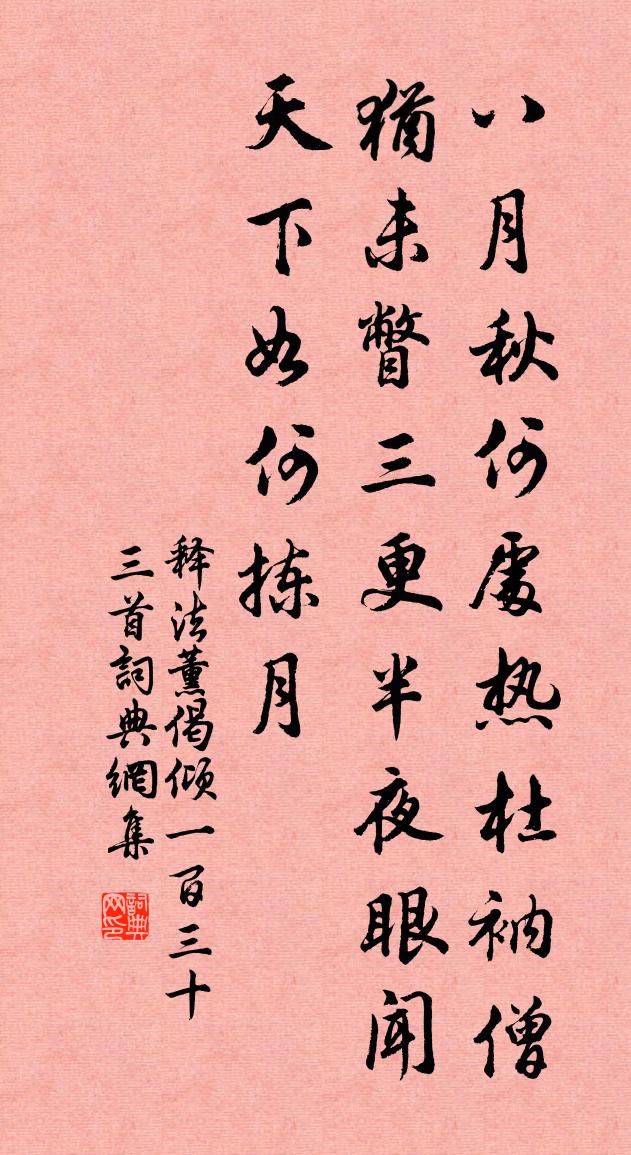 八月秋何處热杜衲僧
猶未瞥三更半夜眼闻
天下如何拣月
释法薰偈倾一百三十
三首詞典網集
詞典网印